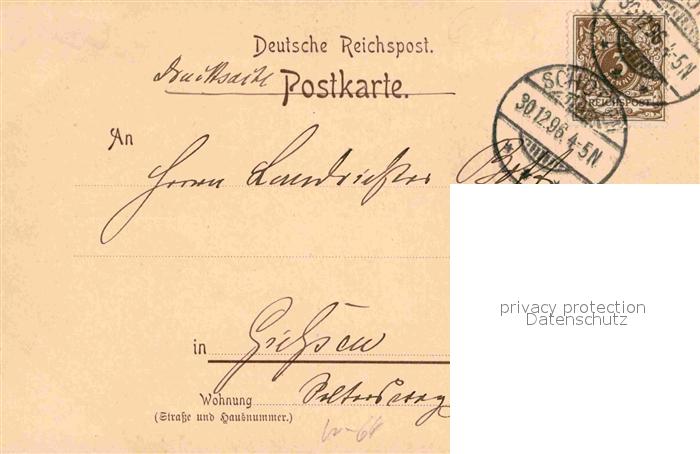 Deutsche Reichspost.
Drucksache Postkarte.
An
Herrn Landrichter
in Gießen
Wohnung
(Straße und Hausnummer.)
3
REICHSPOST
30.12.96. 4-5N
30.12.96. 4-5N
privacy protection
Datenschutz